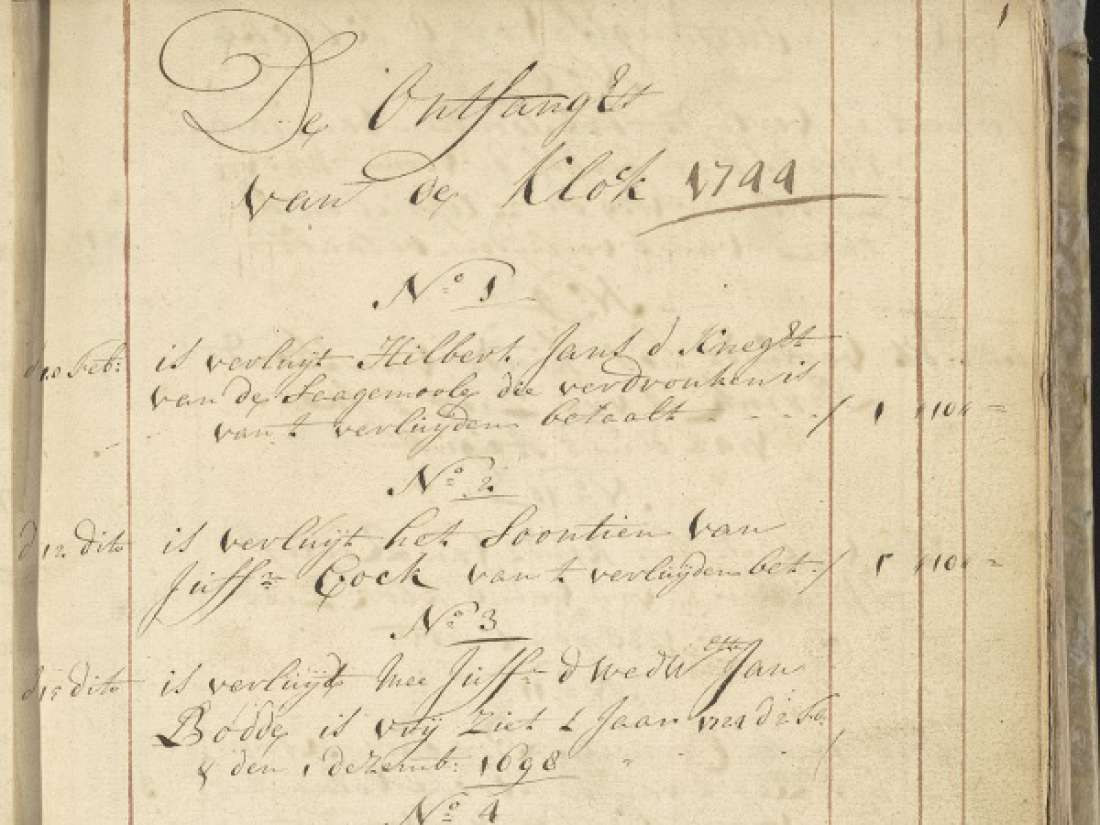 1
De Ontfangst
van de Klock 1744
No 1
d 10 Feb: is verluijt Hilbert Jans d Knegt
van de Saagemoole die verdronken is
van t verluijden betaalt - - - - / 1 " 10 " =
No 2
d 12 dito is verluijt het Soontien van
Juffr Cock van t verluijden bet: / 1 " 10 " =
No 3
dito is verluijt Mee Juffr d wedw Jan
Bodde is vrij Ziet t Jaar d 2 Feb:
& den 1 dezemb: 1698 " " /
No 4